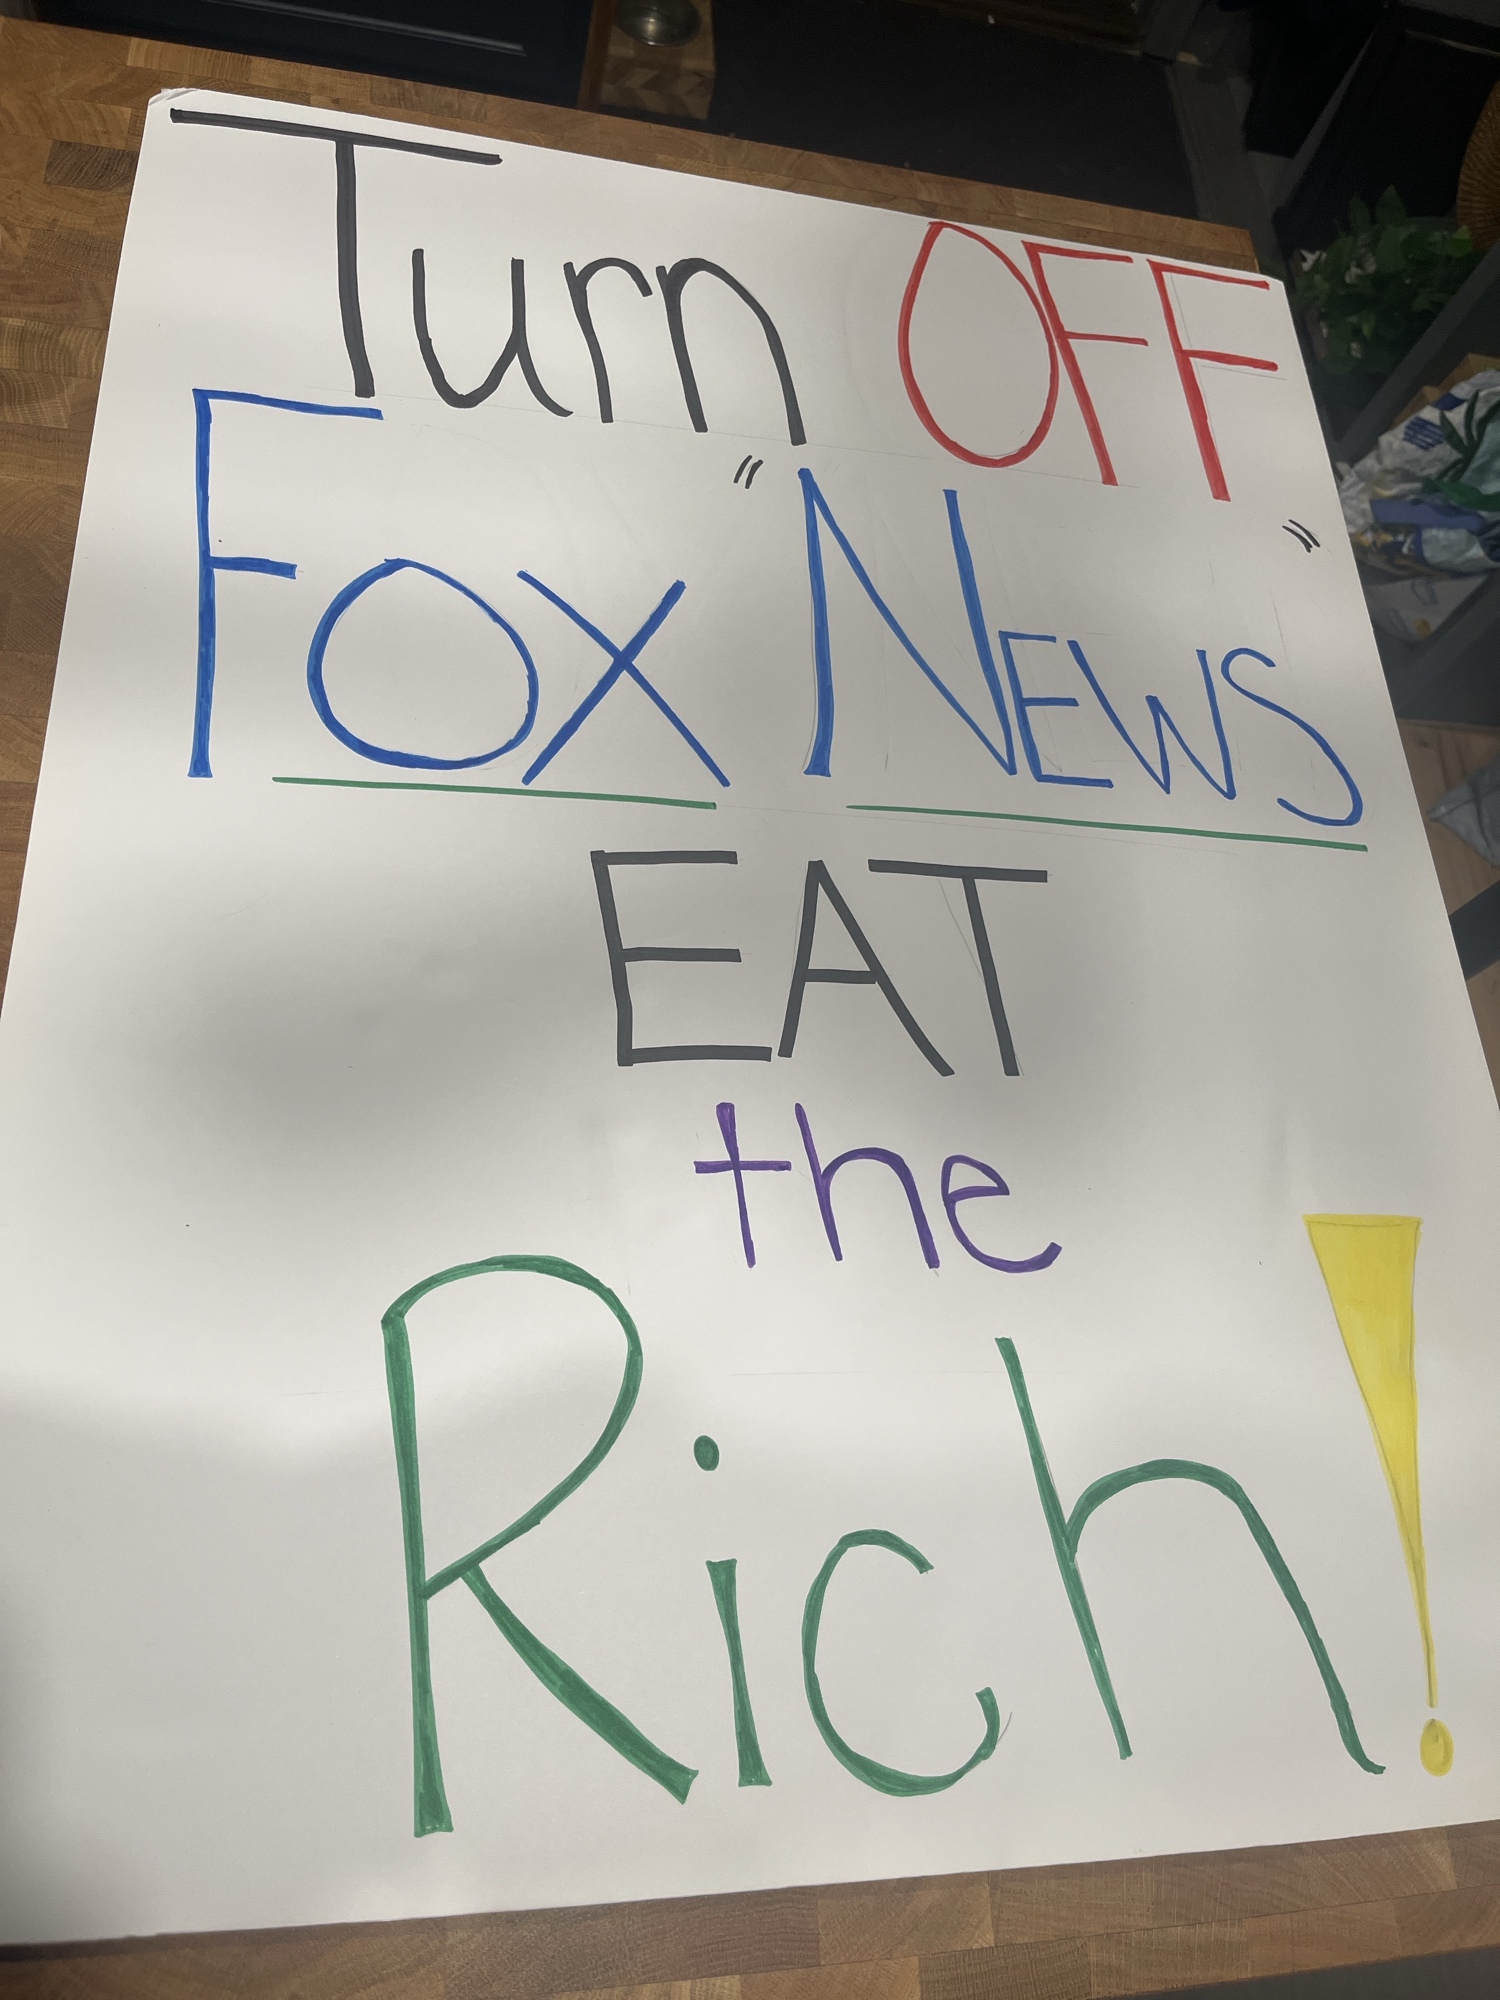 Turn OFF
Fox "News"
EAT
the
Rich!